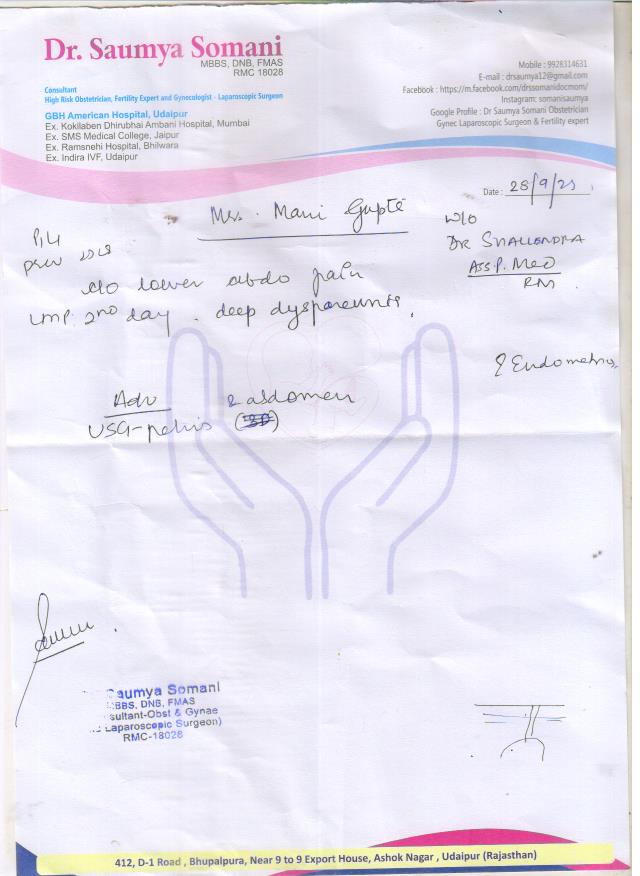 Dr. Saumya Somani
MBBS, DNB, FMAS
RMC 18028
Consultant
High Risk Obstetrician, Fertility Expert and Gynecologist - Laparoscopic Surgeon
GBH American Hospital, Udaipur
Ex. Kokilaben Dhirubhai Ambani Hospital, Mumbai
Ex. SMS Medical College, Jaipur
Ex. Ramsnehi Hospital, Bhilwara
Ex. Indira IVF, Udaipur
Mobile : 9928314631
E-mail : drsaumya12@gmail.com
Facebook : https://m.facebook.com/drssomanidocmom/
Instagram: somanisaumya
Google Profile : Dr Saumya Somani Obstetrician
Gynec Laparoscopic Surgeon & Fertility expert
Date : 28/9/
Mrs. Gupte
w/o
DR SHALLENDRA
ASS.P. MED
P1L1
prev
c/o lower abdo pain
LMP 2nd day . deep dyspareunia.
? Endometrios
Adv & abdomen
USG-pelvis
Saumya Somani
MBBS, DNB, FMAS
sultant-Obst & Gynae
Laparoscopic Surgeon)
RMC-18028
412, D-1 Road , Bhupalpura, Near 9 to 9 Export House, Ashok Nagar , Udaipur (Rajasthan)